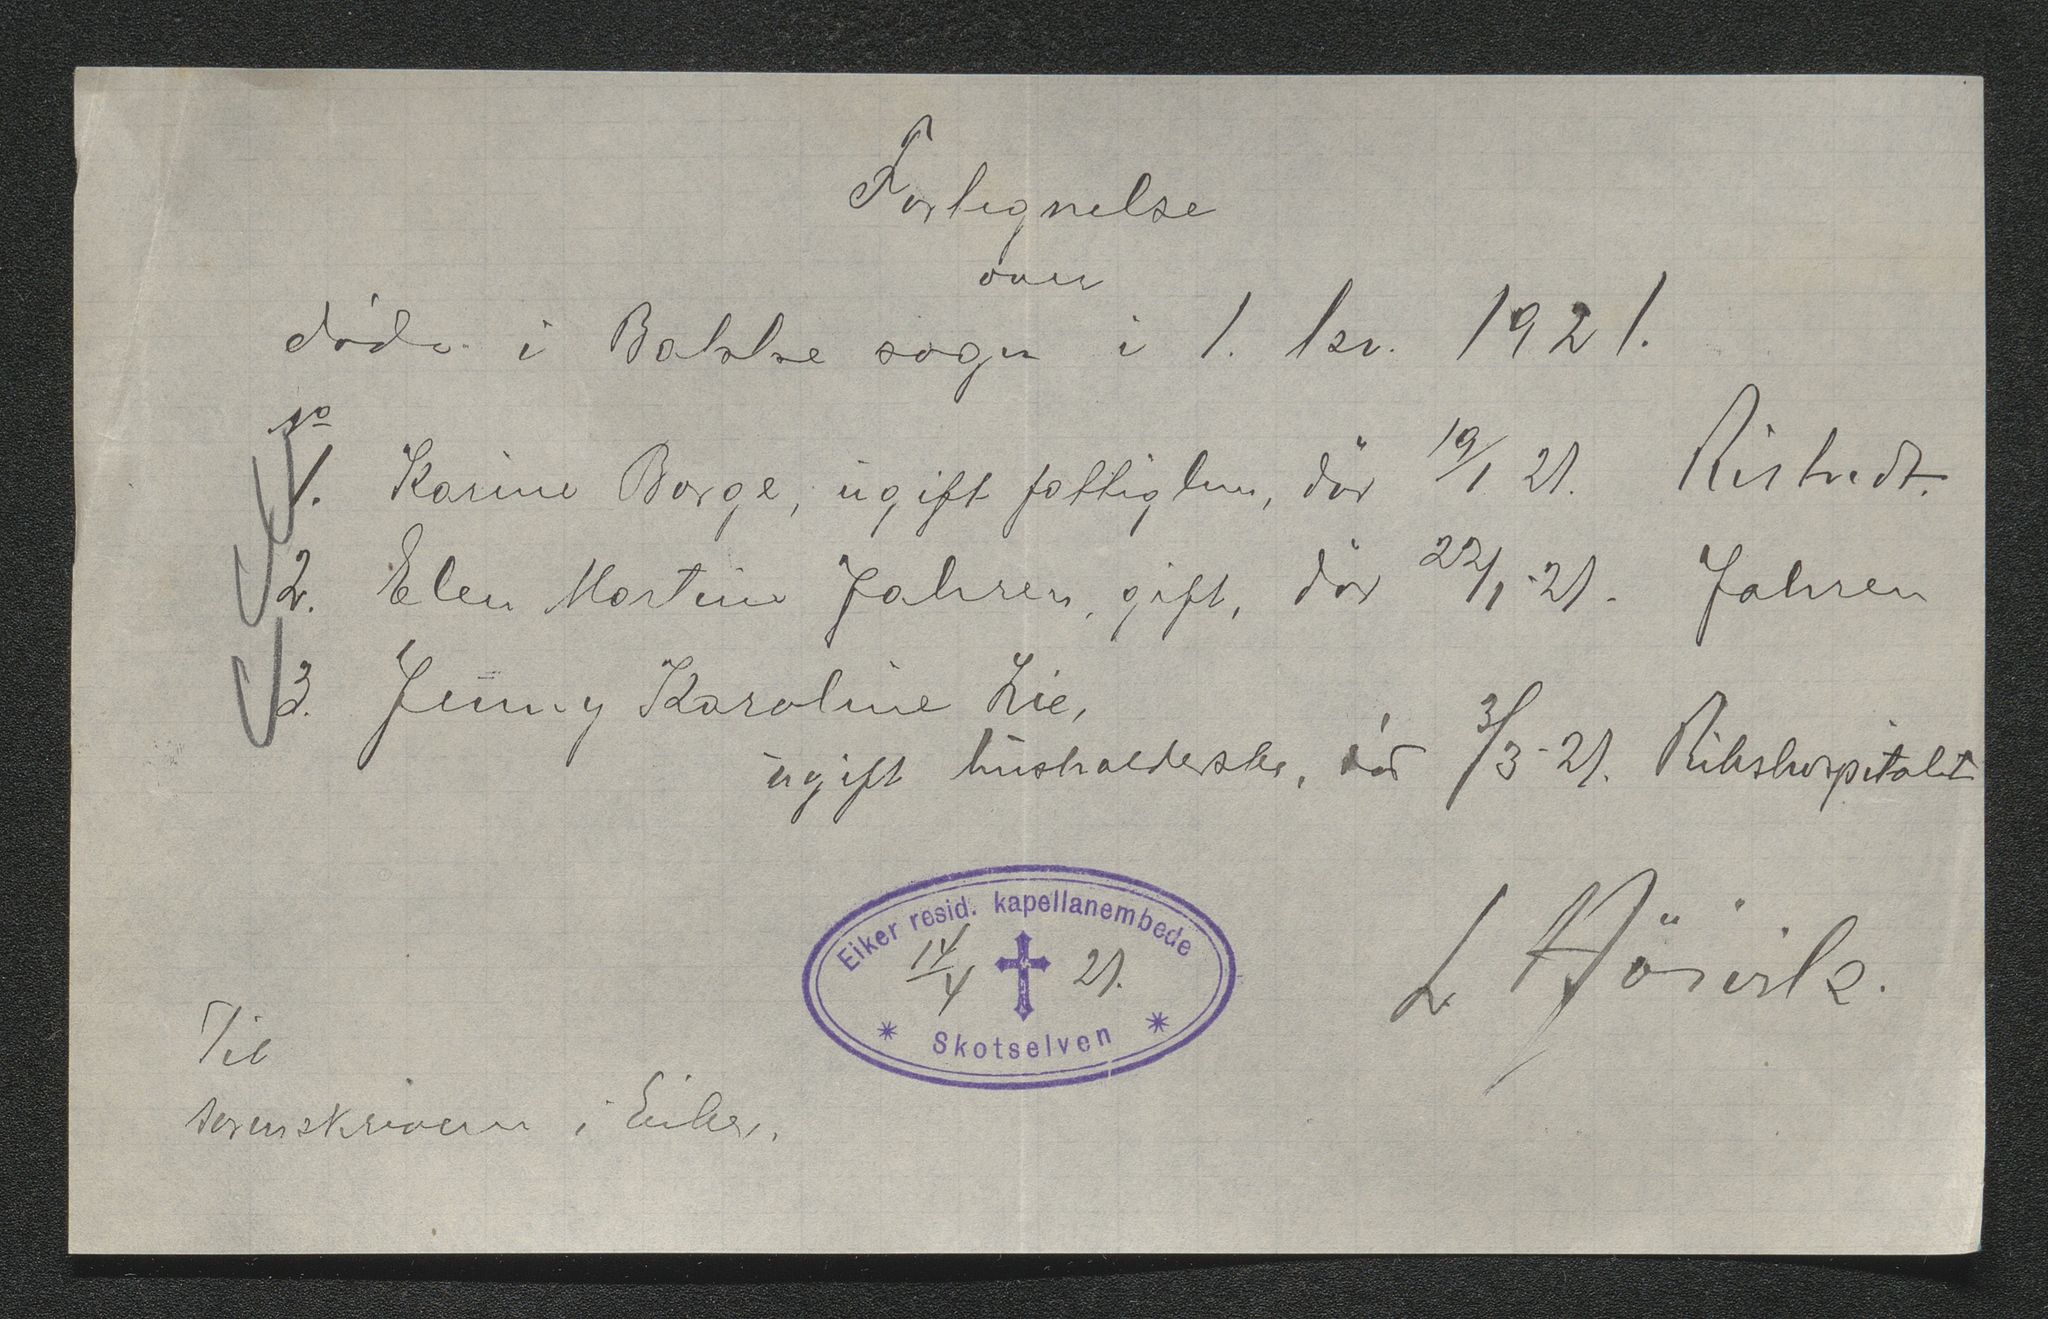 Forlegnelse
over
døde i Bakke sogn i 1. kv. 1921.
No
1. Karine Borge, ugift fattiglem, död 19/1 21. Ristvedt.
2. Elen Martine Jahren, gift, död 22/1-21. Jahren
3. Jenny Karoline Lie,
ugift husholderske, död 3/3-21. Rikshospitalet
Eiker resid. kapellanembede
14/4 21.
Skotselven
L Hörvik.
Til
sorenskriveren i Eiker.